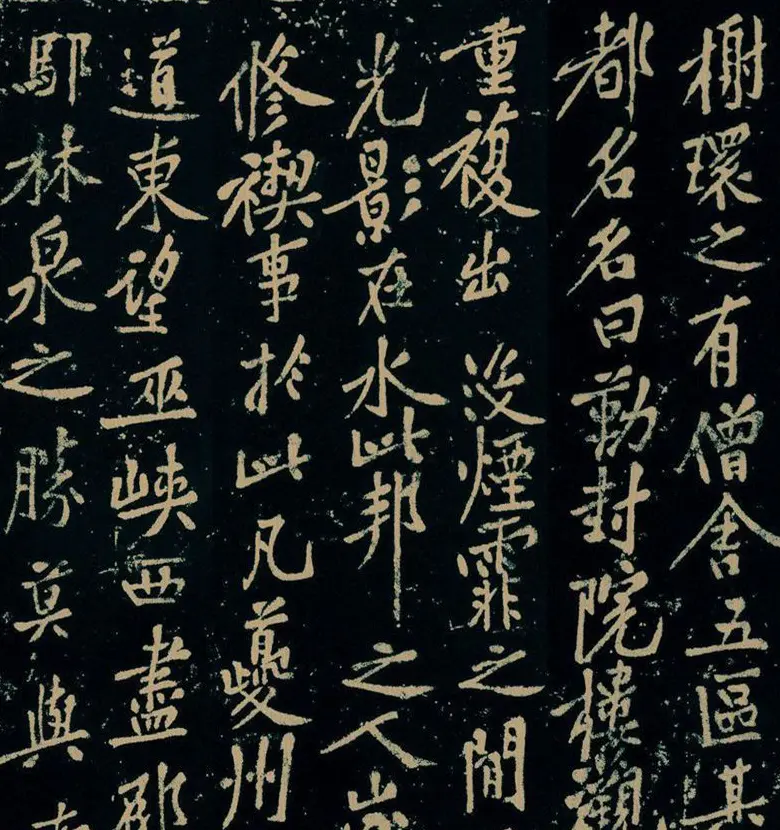 榭環之有僧舍五區其
都名名曰勒封院樓觀
重複出沒煙霏之閒
光影在水此邦之人
修禊事於此凡夔州
道東望巫峽西盡郁
鄢林泉之勝莫與